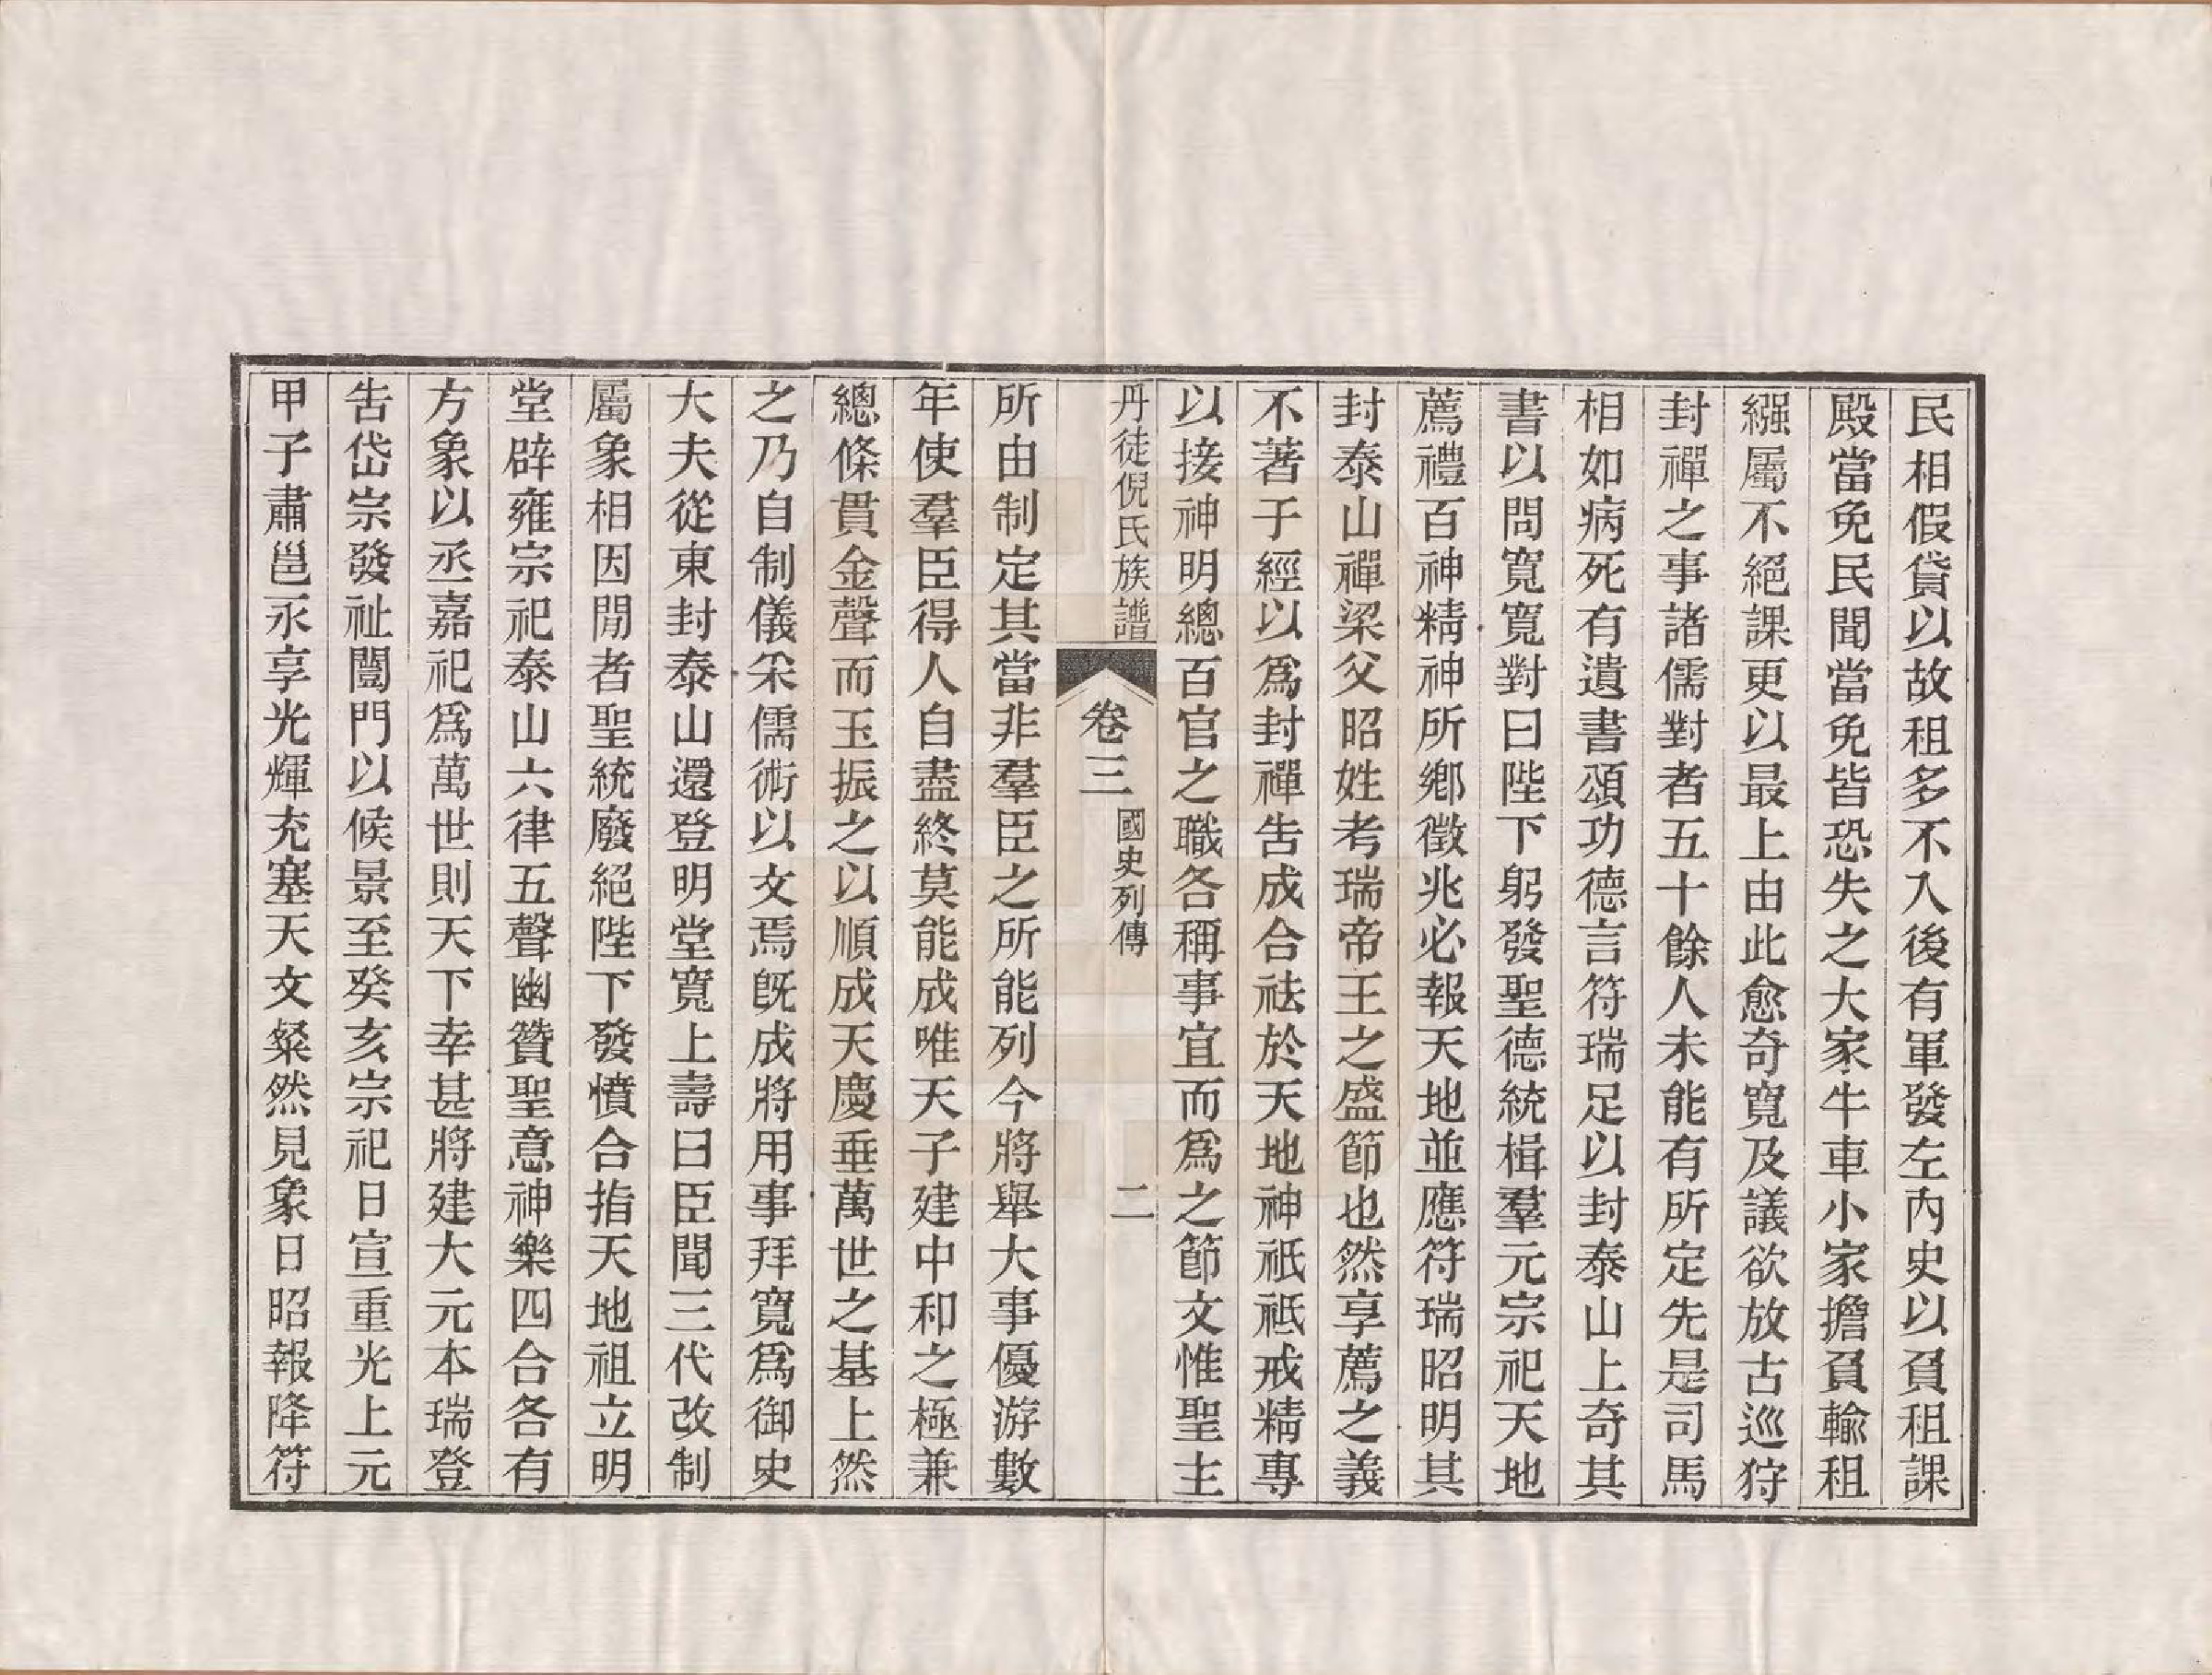 民相假貸以故租多不入後有軍發左內史以負租課
殿當免民聞當免皆恐失之大家牛車小家擔負輸租
繈屬不絕課更以最上由此愈奇寬及議欲放古巡狩
封禪之事諸儒對者五十餘人未能有所定先是司馬
相如病死有遺書頌功德言符瑞足以封泰山上奇其
書以問寬寬對曰陛下躬發聖德統楫羣元宗祀天地
薦禮百神精神所鄉徵兆必報天地並應符瑞昭明其
封泰山禪梁父昭姓考瑞帝王之盛節也然享薦之義
不著于經以爲封禪告成合祛於天地神祇祗戒精專
以接神明總百官之職各稱事宜而爲之節文惟聖主
丹徒倪氏族譜
卷三
國史列傳
二
所由制定其當非羣臣之所能列今將舉大事優游數
年使羣臣得人自盡終莫能成唯天子建中和之極兼
總條貫金聲而玉振之以順成天慶垂萬世之基上然
之乃自制儀采儒術以文焉旣成將用事拜寬爲御史
大夫從東封泰山還登明堂寬上壽曰臣聞三代改制
屬象相因閒者聖統廢絕陛下發憤合指天地祖立明
堂辟雍宗祀泰山六律五聲幽贊聖意神樂四合各有
方象以丞嘉祀爲萬世則天下幸甚將建大元本瑞登
告岱宗發祉闓門以候景至癸亥宗祀日宣重光上元
甲子肅邕永享光輝充塞天文粲然見象日昭報降符